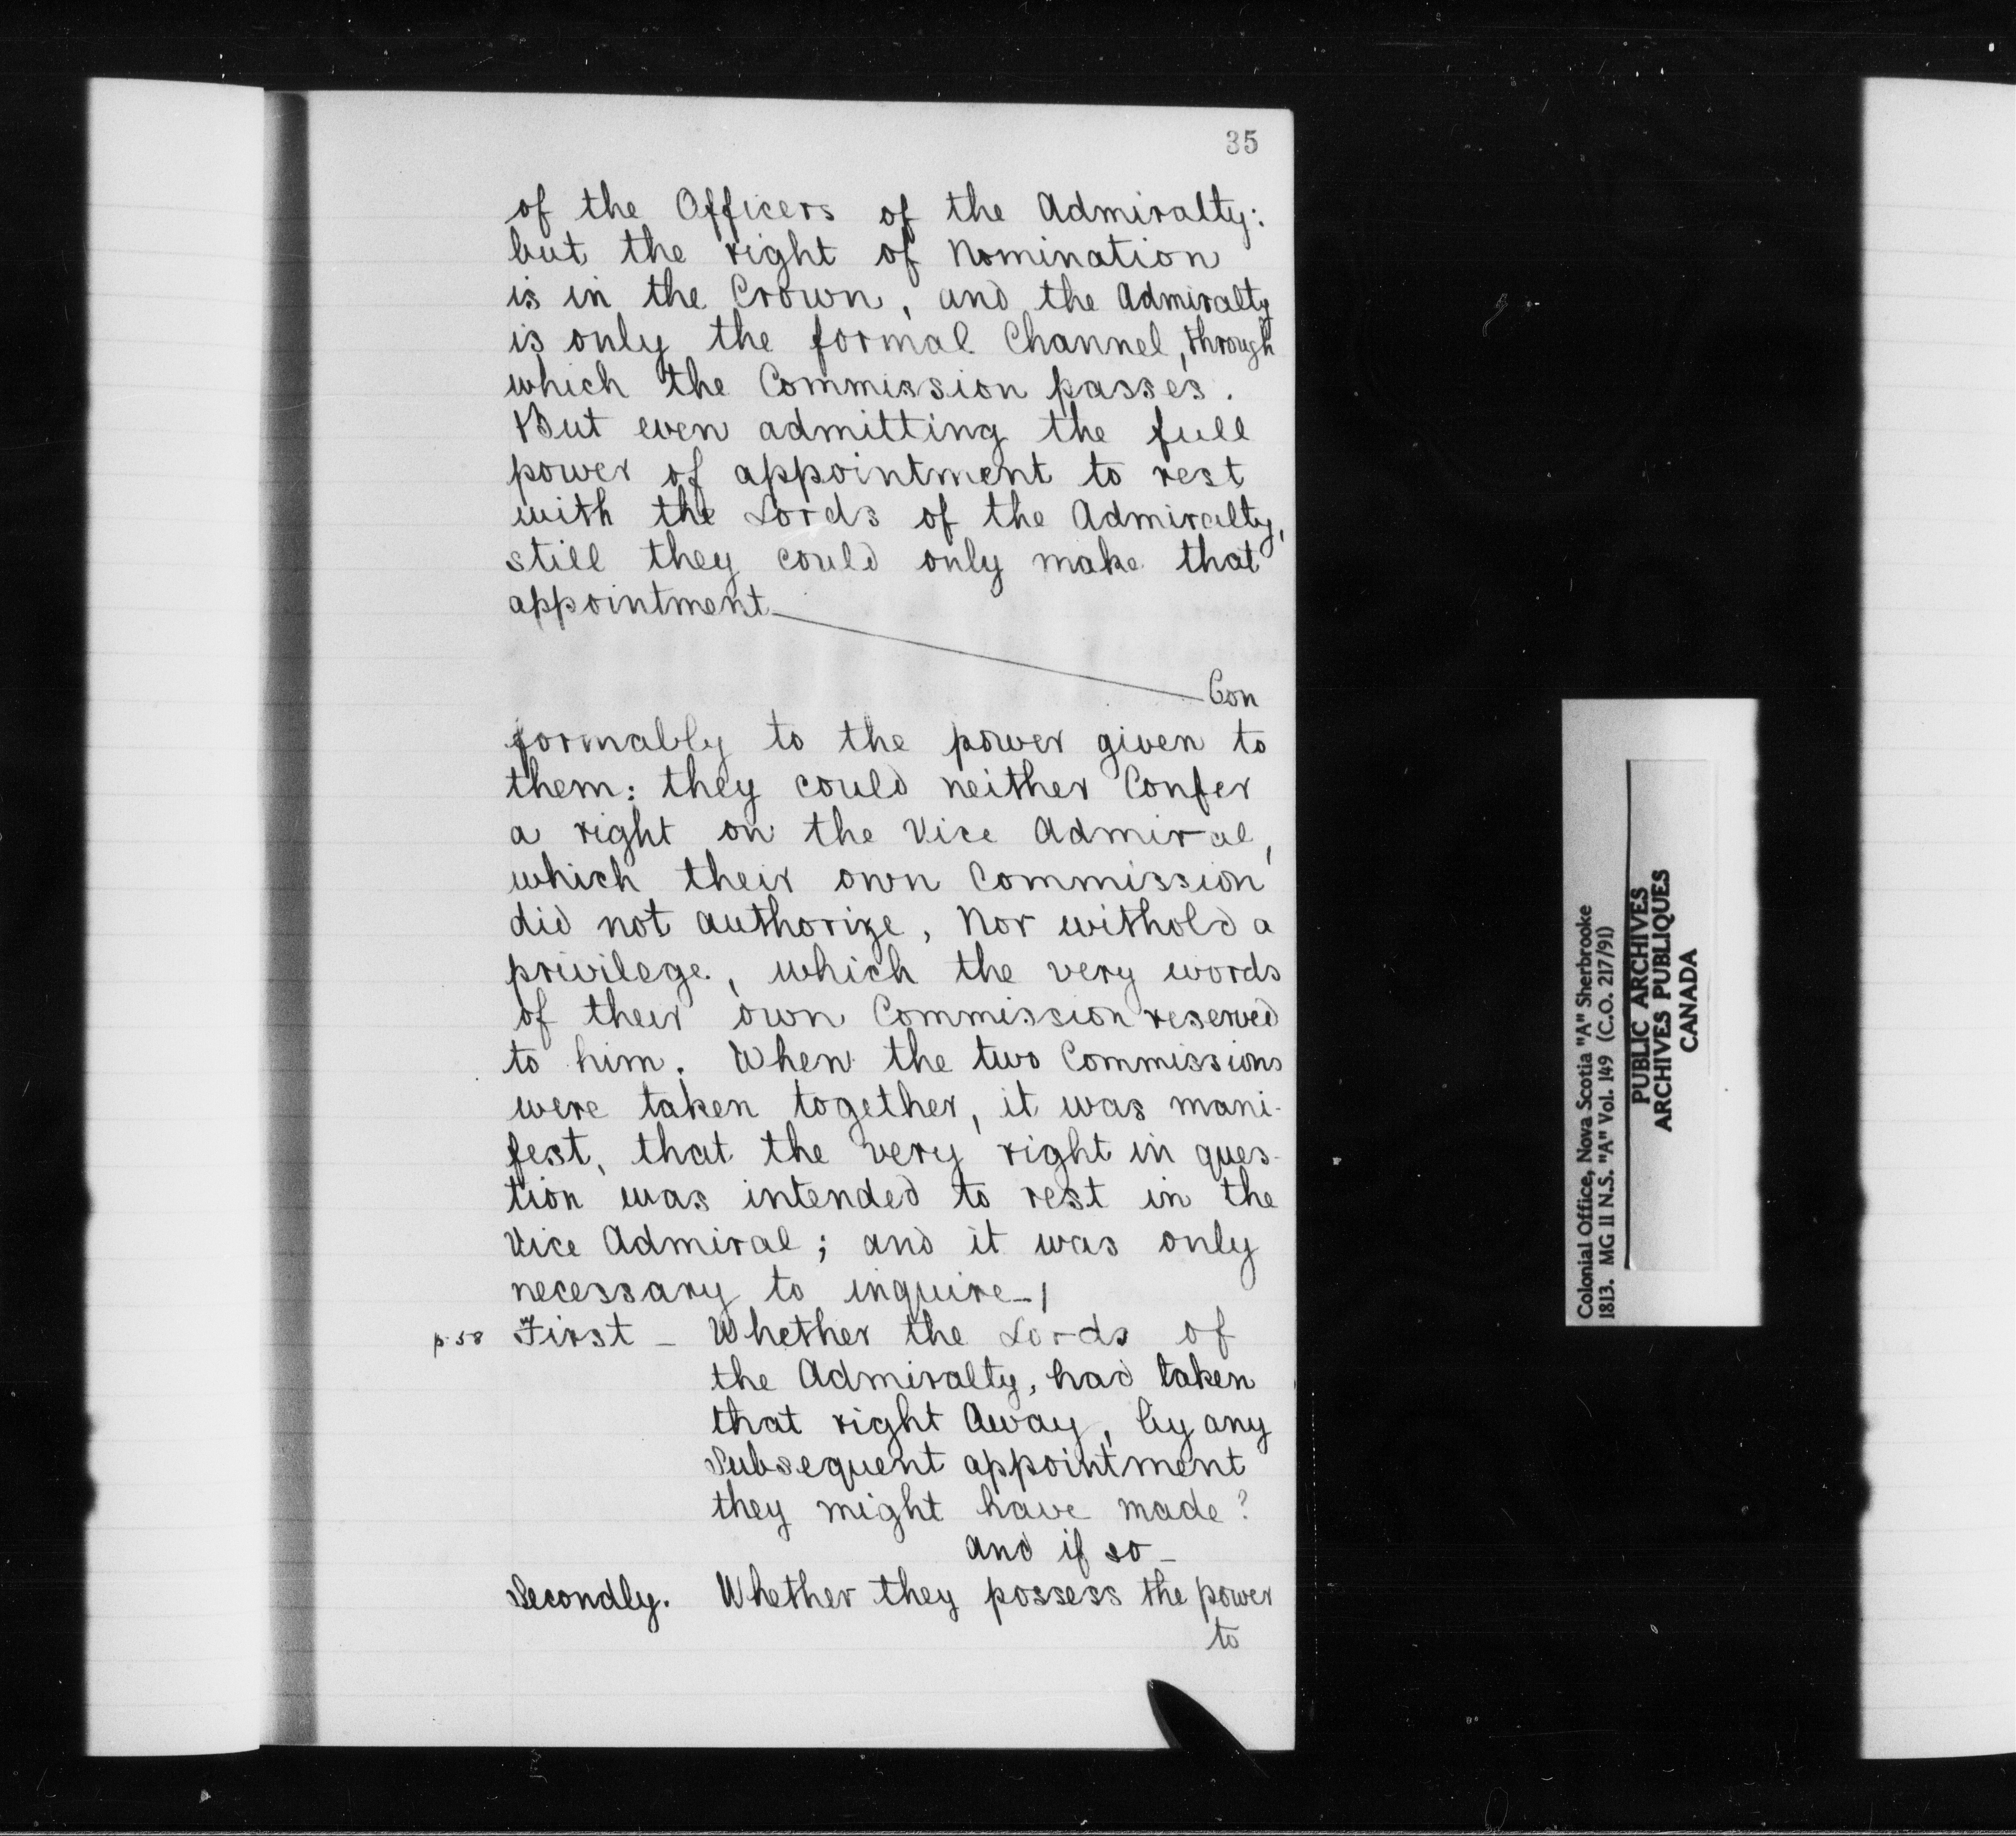 35
of the Officers of the Admiralty:
but the right of Nomination
is in the Crown, and the Admiralty
is only the formal Channel, through
which the Commission passes.
But even admitting the full
power of appointment to rest
with the Lords of the Admiralty,
still they could only make that
appointment
Con
formably to the power given to
them: they could neither Confer
a right on the Vice Admiral,
which their own Commission
did not authorize, Nor withold a
privilege, which the very words
of their own Commission reserved
to him. When the two Commissions
were taken together, it was mani-
fest, that the very right in ques-
tion was intended to rest in the
Vice Admiral; and it was only
necessary to inquire—
p. 58 First — Whether the Lords of
the Admiralty, had taken
that right Away, by any
Subsequent appointment
they might have made?
and if so —
Secondly. Whether they possess the power
to
Colonial Office, Nova Scotia "A" Sherbrooke
1813. MG 11 N.S. "A" Vol. 149 (C.O. 217/91)
PUBLIC ARCHIVES
ARCHIVES PUBLIQUES
CANADA